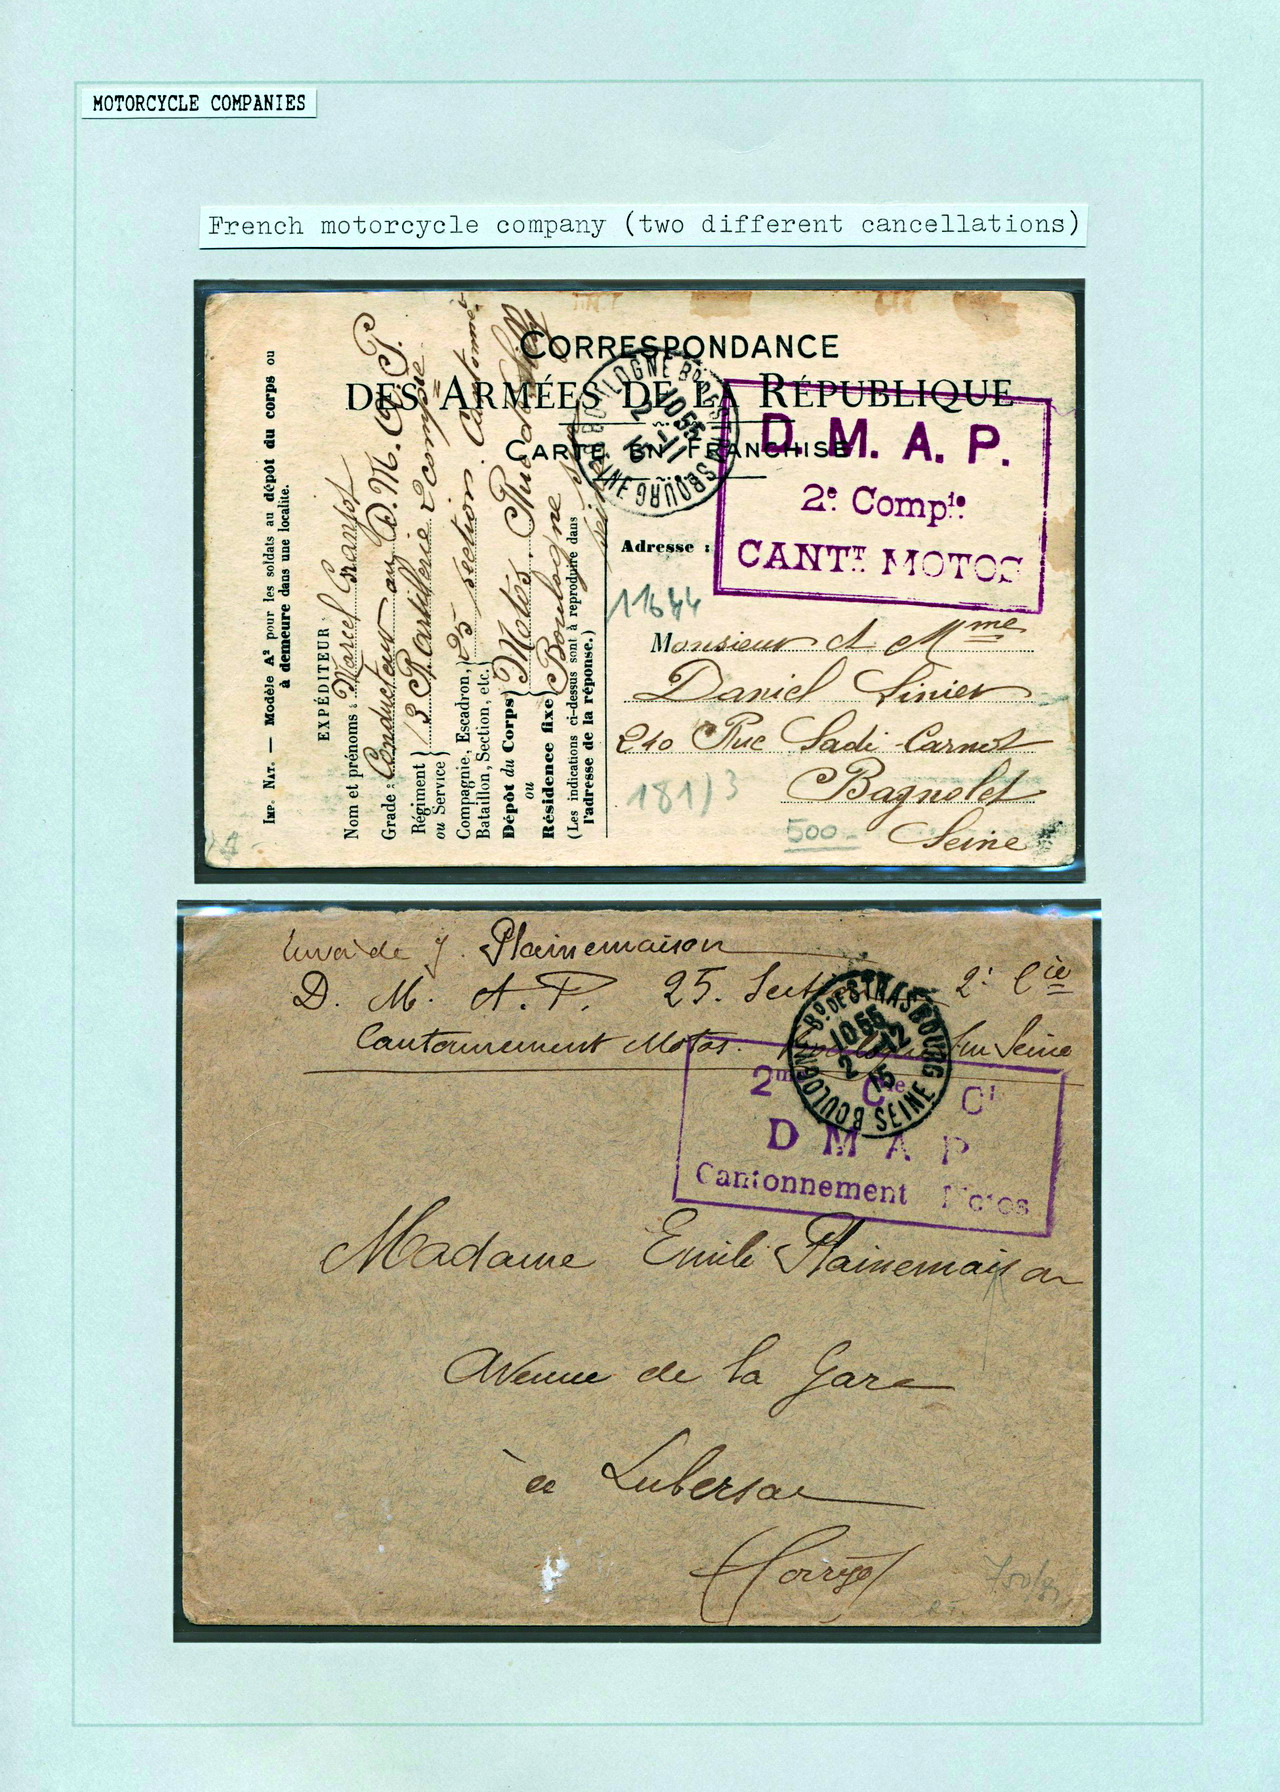 MOTORCYCLE COMPANIES
French motorcycle company (two different cancellations)
CORRESPONDANCE
DES ARMÉES DE LA RÉPUBLIQUE
CARTE EN FRANCHISE
BOULOGNE Bd DE STRASBOURG SEINE
10 55
2
11
15
D. M. A. P.
2e Compie
CANTt MOTOS
IMP. NAT. — Modèle A2 pour les soldats au dépôt du corps ou
à demeure dans une localité.
EXPÉDITEUR
Nom et prénoms : Marcel
Grade : Conducteur au D. M. A. P.
Régiment
ou Service
13 Artillerie 2 compie
Compagnie, Escadron,
Bataillon, Section, etc.
25 section. Cantonnet
Dépôt du Corps
Motos. Rue de Silly
ou
Résidence fixe
Boulogne sur
Seine
(Les indications ci-dessus sont à reproduire dans
l'adresse de la réponse.)
Adresse :
11644
Monsieur et Mme
Daniel Linier
210 Rue Sadi-Carnot
Bagnolet
Seine
181/3
500-
Envoi de J. Plainemaison
D. M. A. P. 25. Section 2e Cie
Cantonnement Motos. Boulogne sur Seine
BOULOGNE Bd DE STRASBOURG SEINE
10 55
2 12
15
2me Cie
D M A P
Cantonnement Motos
Madame Emile Plainemaison
Avenue de la Gare
à Lubersac
(Corrèze)